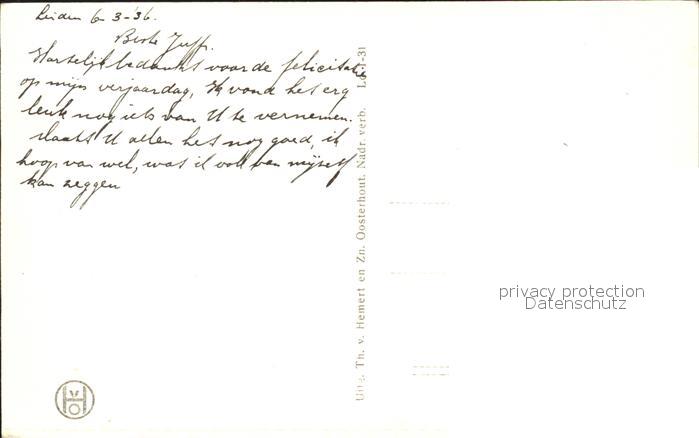 Leiden 6-3-'36.
Beste Juffr.
Hartelijk bedankt voor de felicitatie
op mijn verjaardag, Ik vond het erg
leuk nog iets van U te vernemen.
Maakt U allen het nog goed, ik
hoop van wel, wat ik ook van mijzelf
kan zeggen
Uitg. Th. v. Hemert en Zn. Oosterhout. Nadr. verb.
privacy protection
Datenschutz